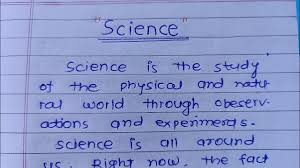 "Science"
Science is the study
of the physical and natu
ral world through obeserv-
ations and experiments.
science is all around
us. Right now, the fact